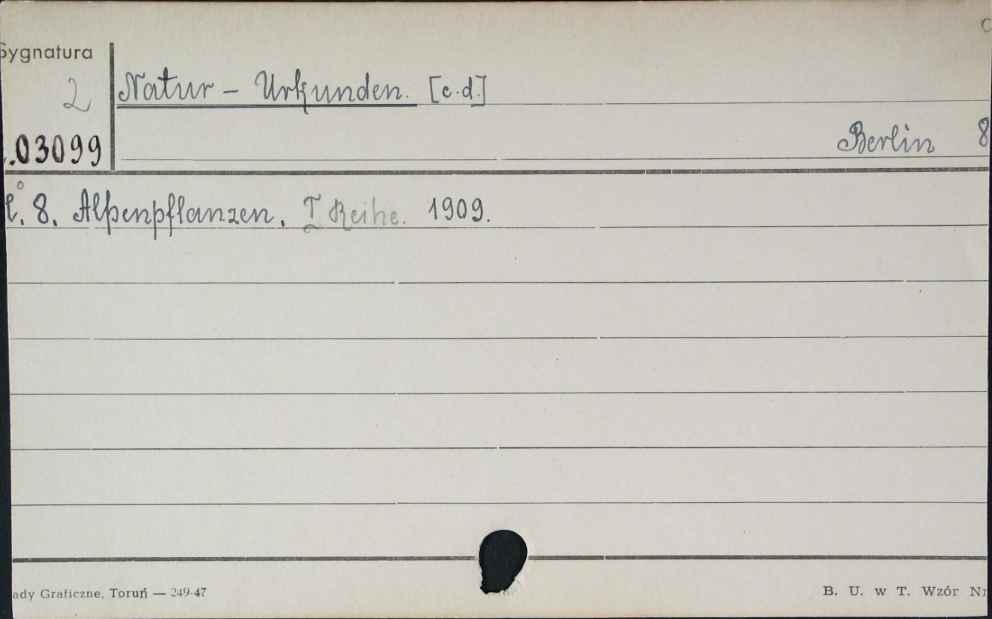 Sygnatura
2 Natur - Urkunden. [c.d.]
.03099 Berlin 8
8. Alpenpflanzen. I. Reihe. 1909.
ady Graficzne, Toruń — 249-47 B. U. w T. Wzór Nr